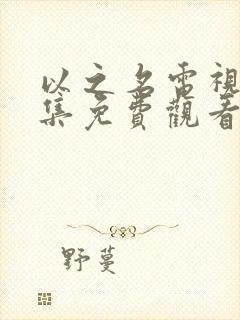 以之名電視
集免費觀看
野蔓